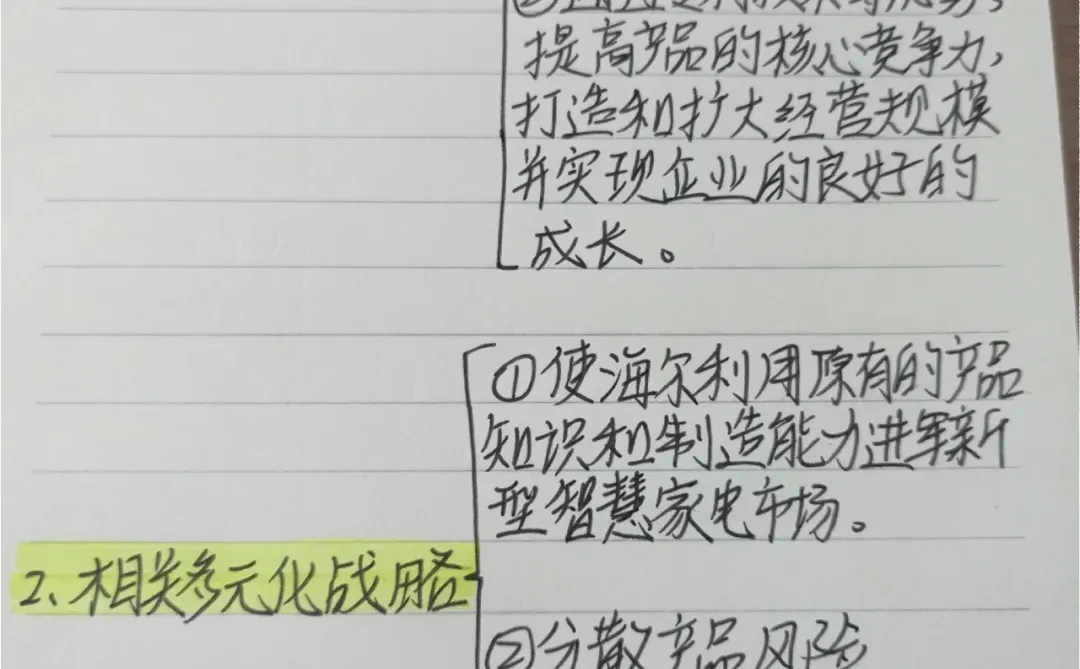 提高产品的核心竞争力,
打造和扩大经营规模
并实现企业的良好的
成长。
①使海尔利用原有的产品
知识和制造能力进军新
型智慧家电市场。
2、相关多元化战略
②分散产品风险